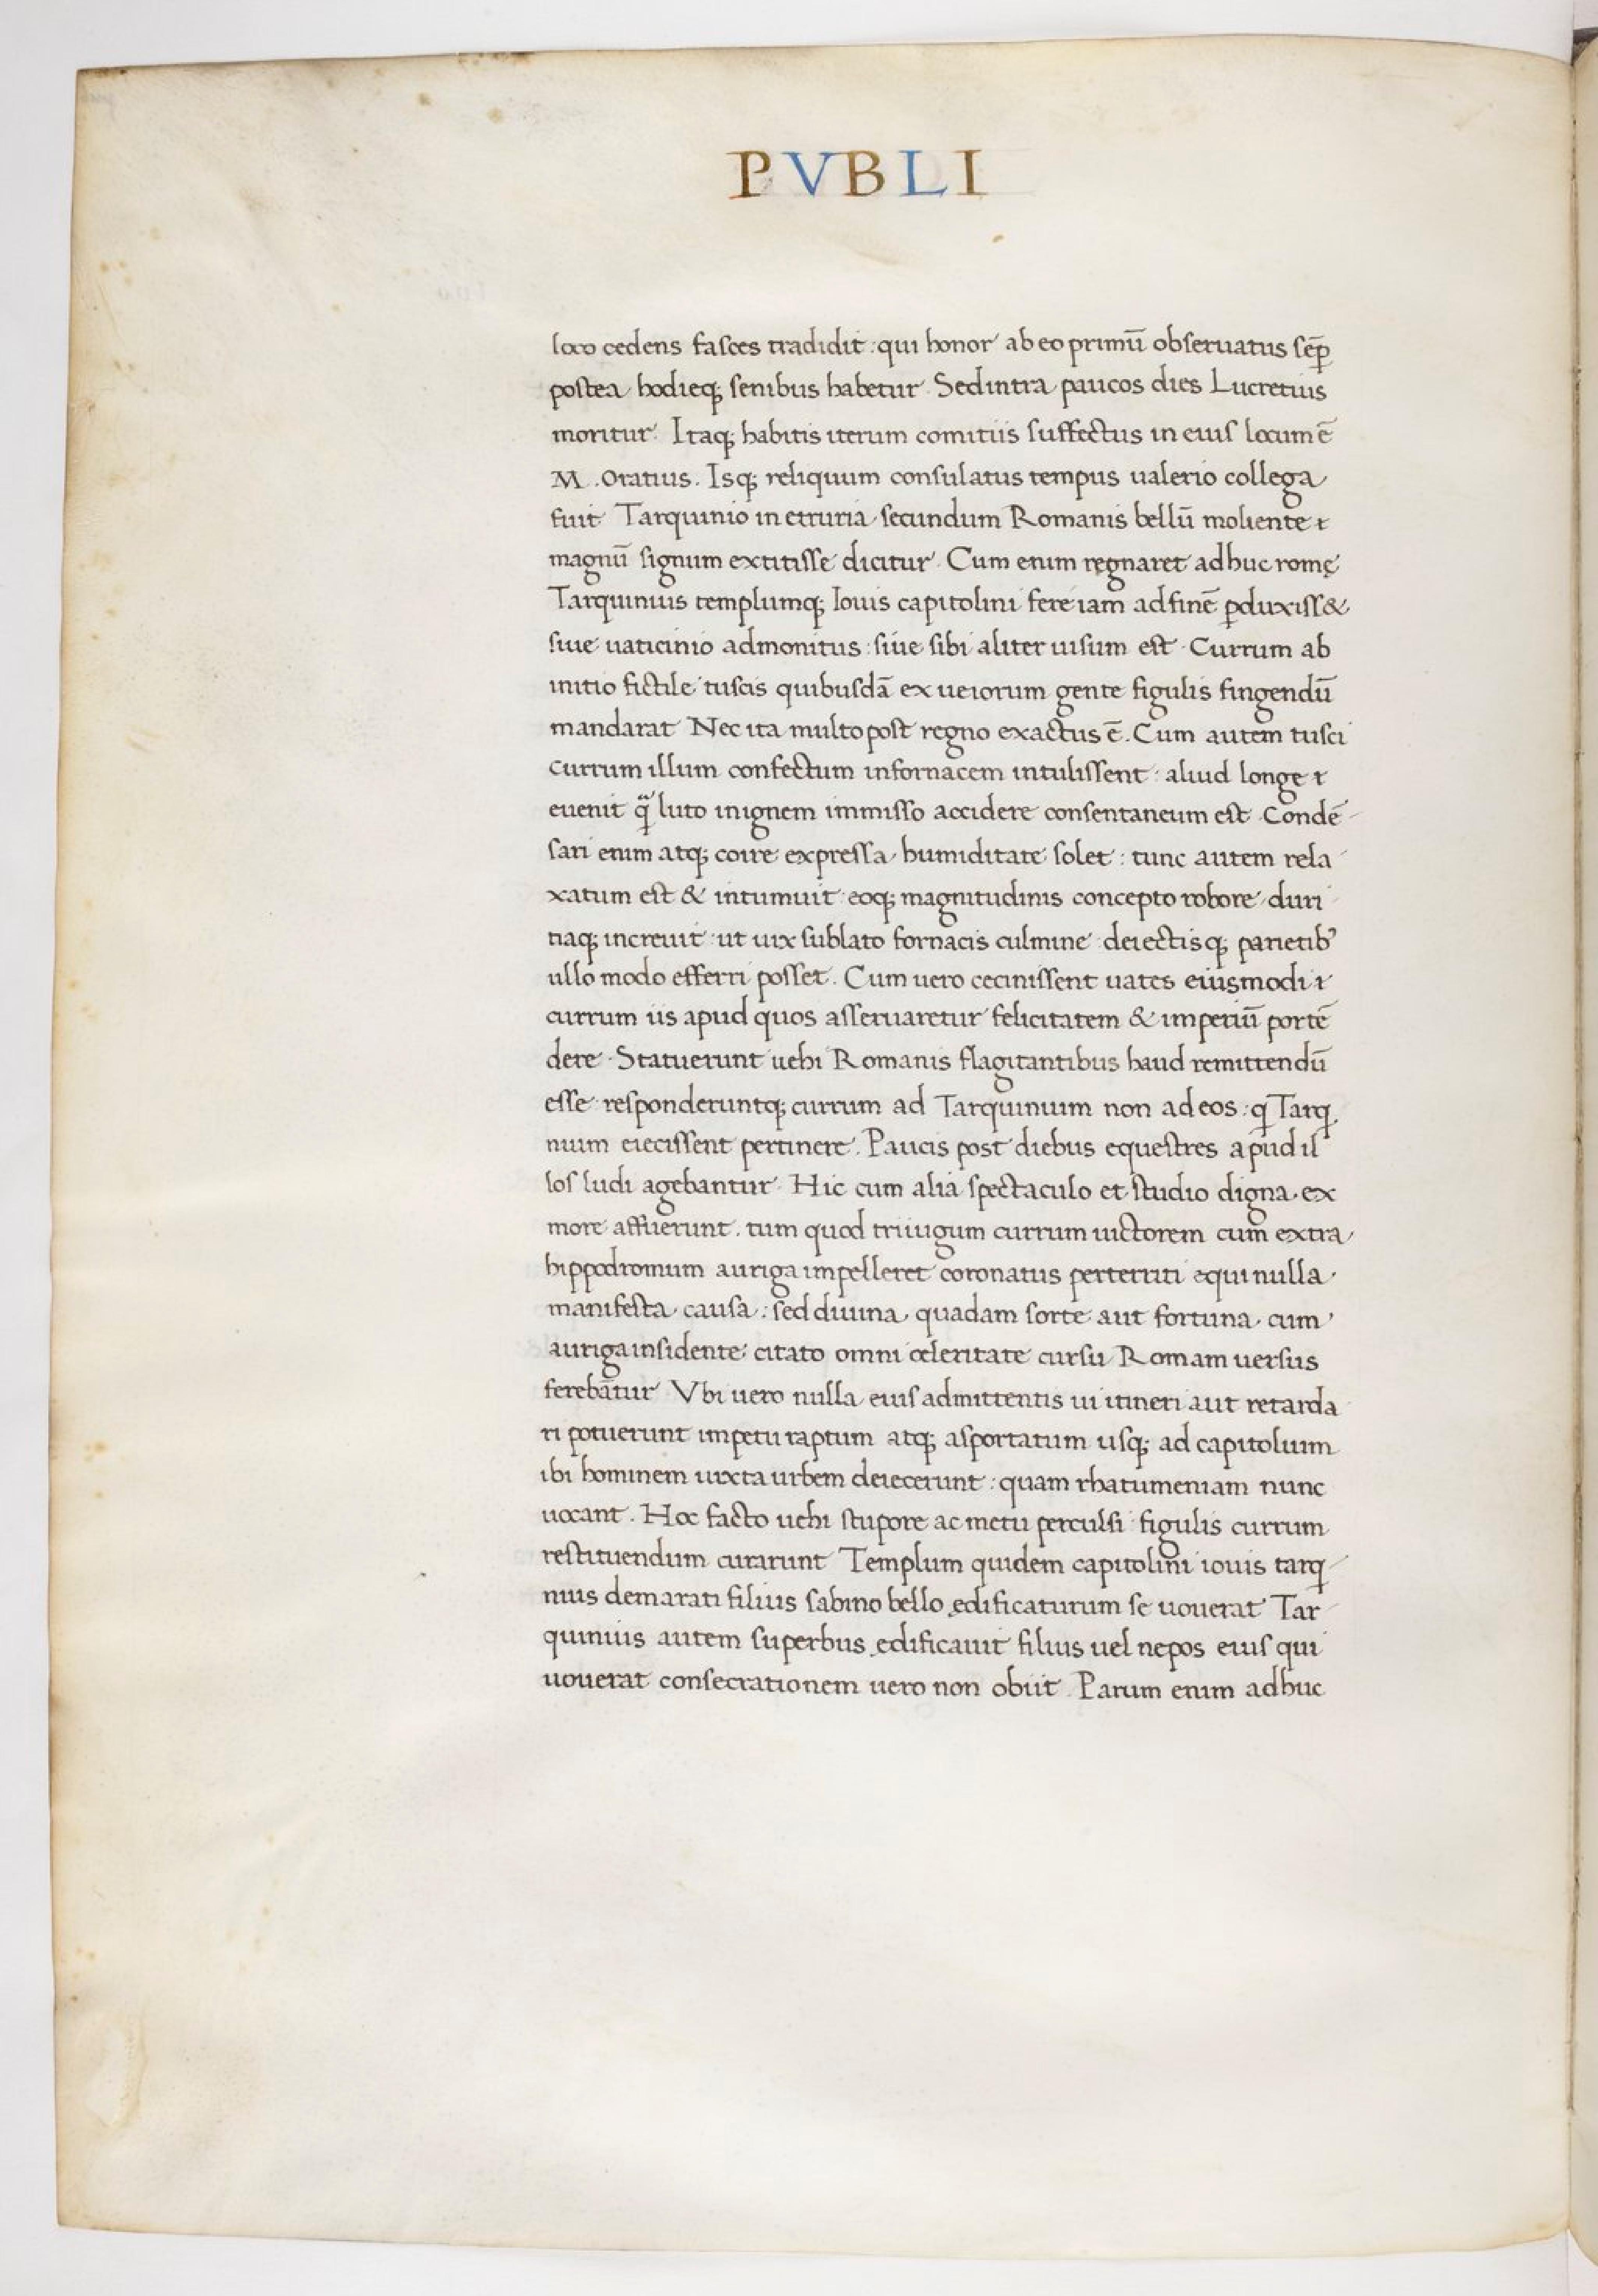 PVBLI
loco cedens fasces tradidit: qui honor ab eo primū obseruatus sēp
postea hodieq; senibus habetur. Sed intra paucos dies Lucretius
moritur. Itaq; habitis iterum comitiis suffectus in eius locum ē
M. Oratius. Isq; reliquum consulatus tempus ualerio collega
fuit. Tarquinio in etruria secundum Romanis bellū moliente &
magnū signum extitisse dicitur. Cum enim regnaret adhuc romę
Tarquinius templumq; Iouis capitolini fere iam ad finē ꝑduxiss&
siue uaticinio admonitus: siue sibi aliter uisum est. Currum ab
initio fictile tuscis quibusdā ex ueiorum gente figulis fingendū
mandarat. Nec ita multo post regno exactus ē. Cum autem tusci
currum illum confectum in fornacem intulissent: aliud longe &
euenit quā luto in ignem immisso accidere consentaneum est. Condē
sari enim atq; coire expressa humiditate solet: tunc autem rela
xatum est & intumuit eoq; magnitudinis concepto robore duri
tiaq; increuit: ut uix sublato fornacis culmine deiectisq; parietib'
ullo modo efferri posset. Cum uero cecinissent uates eiusmodi &
currum iis apud quos asseruaretur felicitatem & imperiū portē
dere. Statuerunt uehi Romanis flagitantibus haud remittendū
esse responderuntq; currum ad Tarquinium non ad eos: q Tarq
nium eiecissent pertinere. Paucis post diebus equestres apud il
los ludi agebantur. Hic cum alia spectaculo et studio digna ex
more affuerunt. tum quod triiugum currum uictorem cum extra
hippodromum auriga impelleret coronatus perterriti equi nulla
manifesta causa: sed diuina quadam sorte aut fortuna cum
auriga insidente citato omni celeritate cursu Romam uersus
ferebātur. Vbi uero nulla eius admittentis ui itineri aut retarda
ri potuerunt impetu raptum atq; asportatum usq; ad capitolium
ibi hominem iuxta urbem deiecerunt: quam rhatumeniam nunc
uocant. Hoc facto uehi stupore ac metu perculsi figulis currum
restituendum curarunt. Templum quidem capitolini iouis tarq
nius demarati filius sabino bello ędificaturum se uouerat. Tar
quinius autem superbus ędificauit filius uel nepos eius qui
uouerat consecrationem uero non obiit. Parum enim adhuc